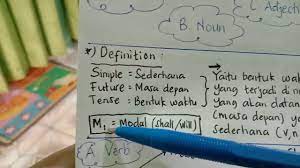 B. Noun
C. Adjecti
*) Definition:
Simple = Sederhana
Future = Masa depan
Tense = Bentuk waktu
Yaitu bentuk wa
yang terjadi di m
yang akan datan
(masa depan) y
sederhana (v,n
M₁ = Modal (shall/will)
A. Verb